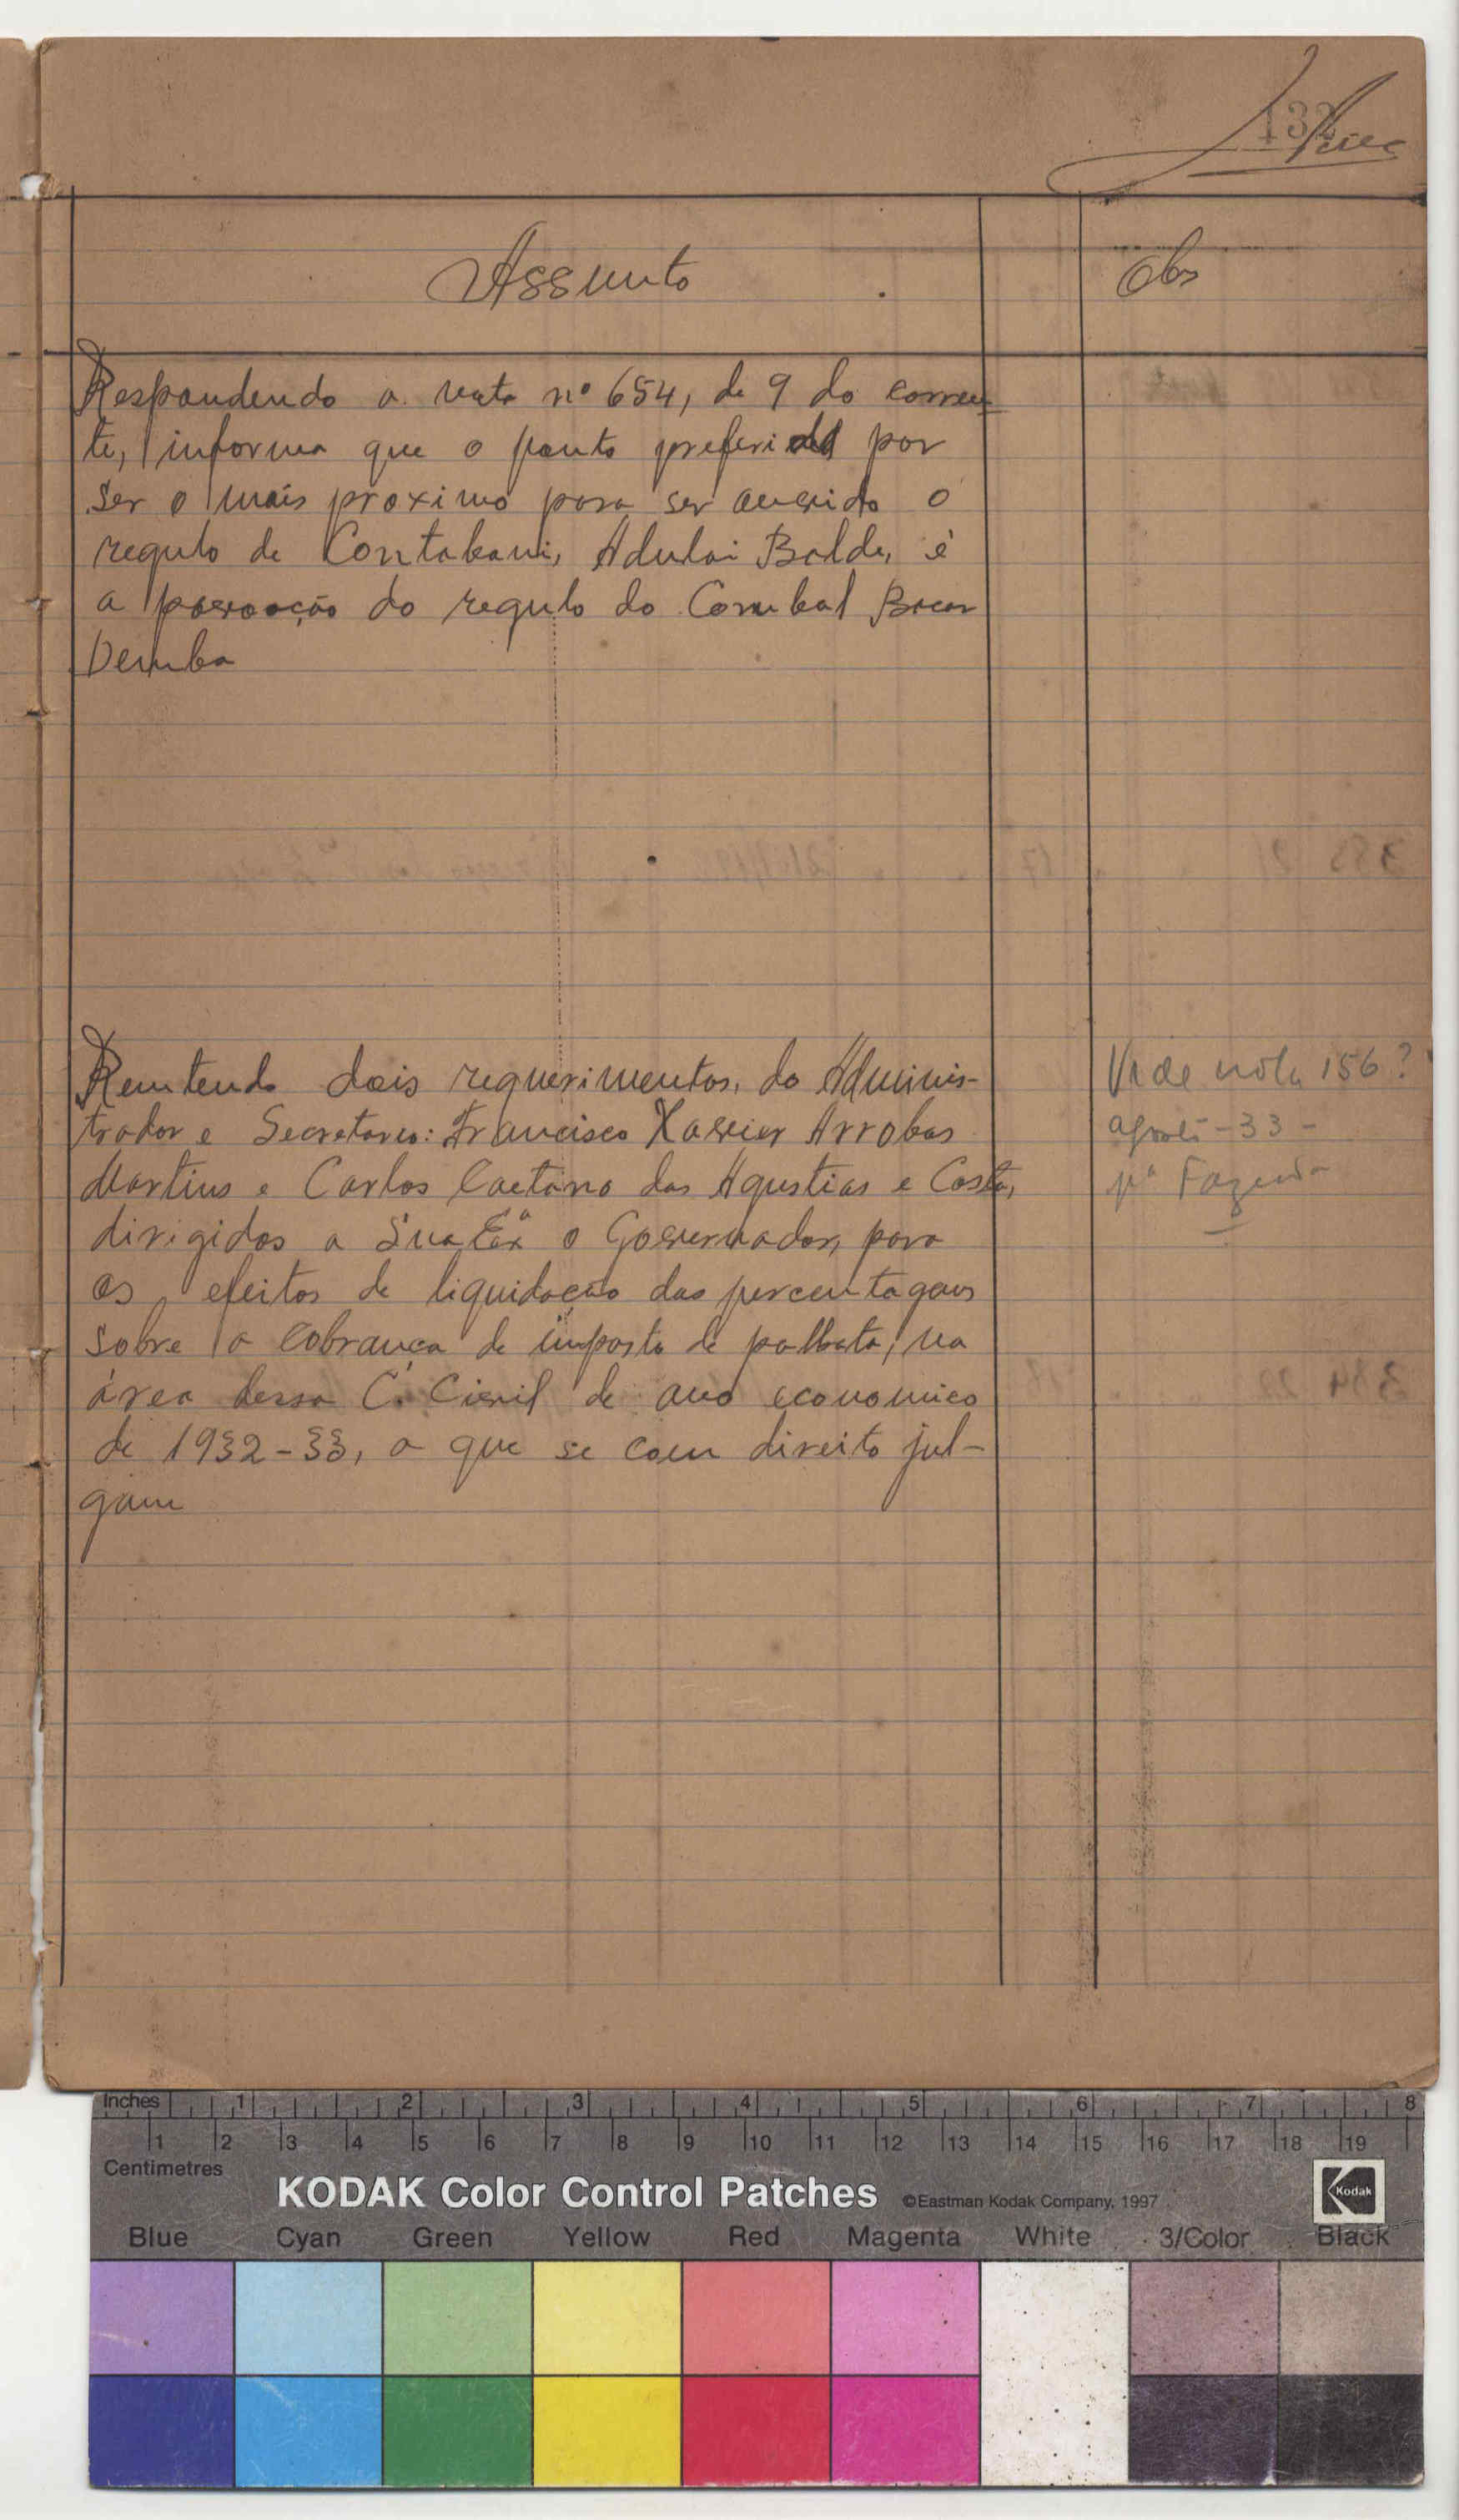 132
Assunto
Obs
Respondendo a nota nº 654, de 9 do corren-
te, informa que o ponto preferido por
ser o mais proximo para ser ouvido o
regulo de Contabani, Adulai Balde, é
a povoação do regulo do Corubal Bacar
Demba
Remtendo dois requerimentos, do Adminis-
trador e Secretario: Francisco Xavier Arrobas
Martins e Carlos Caetano das Agustias e Costa,
dirigidos a Sua Exª o Governador, para
os efeitos de liquidação das percentagens
sobre a cobrança de imposto de palhota, na
área dessa C. Civil de ano economico
de 1932-33, a que se com direito jul-
gam
Vide nota 156
agosto-33-
pª Fazenda
Inches 1 2 3 4 5 6 7 8
1 2 3 4 5 6 7 8 9 10 11 12 13 14 15 16 17 18 19
Centimetres
KODAK Color Control Patches ©Eastman Kodak Company, 1997 Kodak
Blue Cyan Green Yellow Red Magenta White 3/Color Black